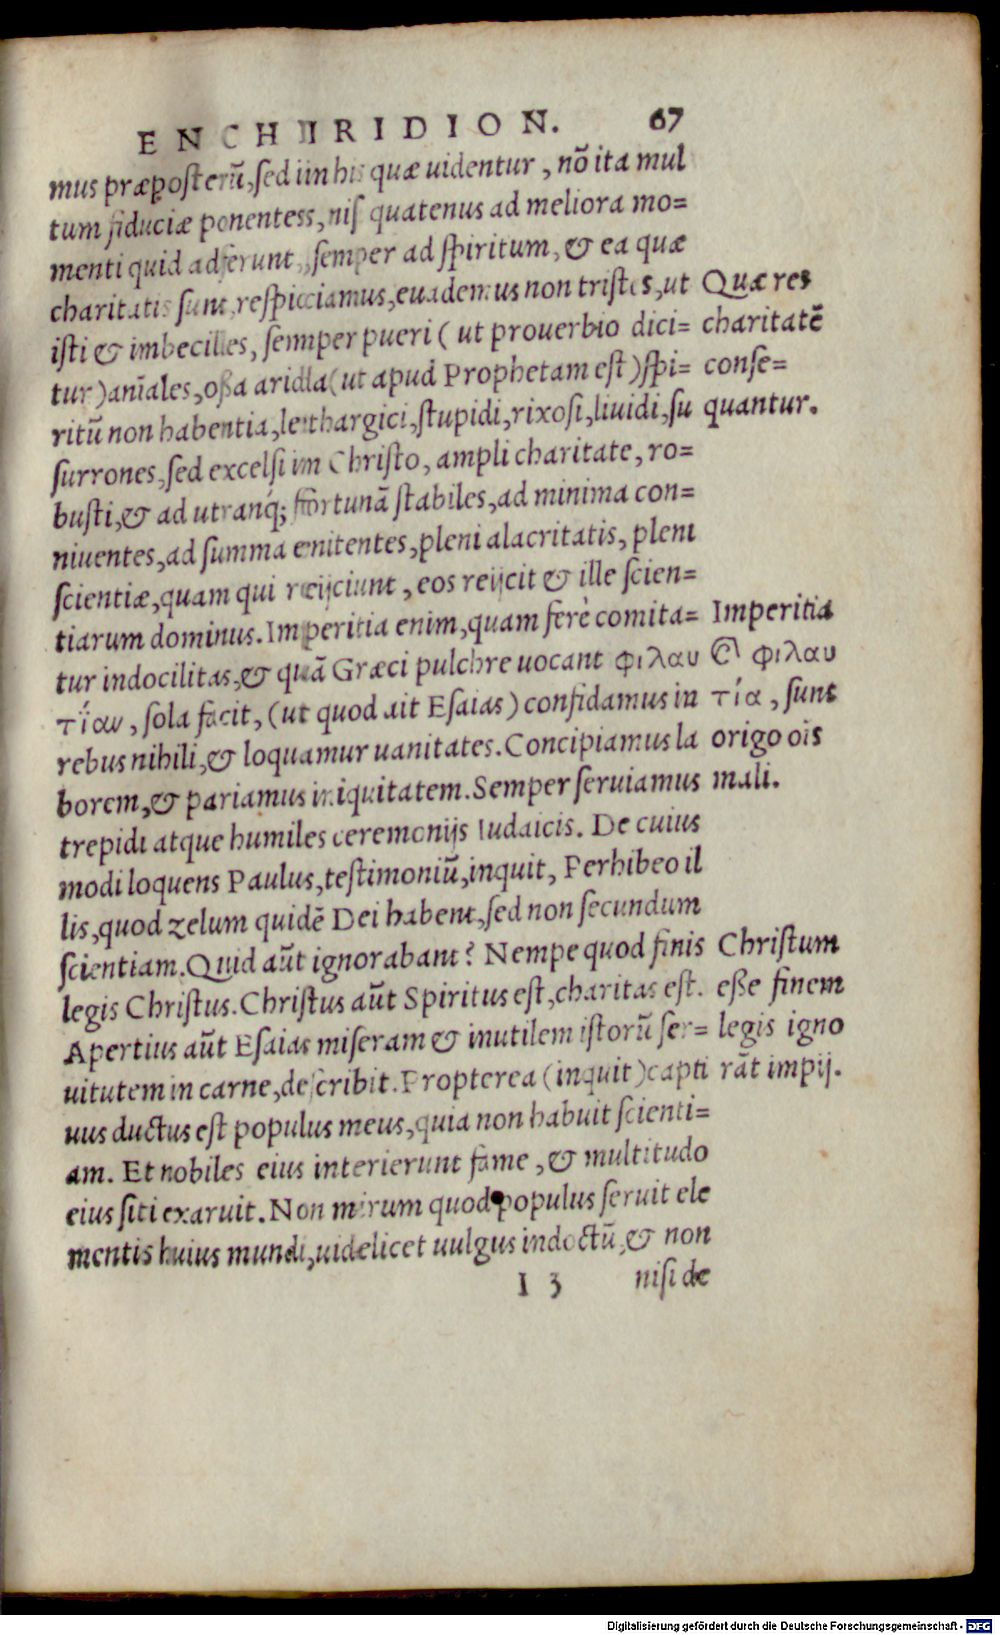 ENCHIRIDION. 67
mus præposterũ, sed in his quæ uidentur, nõ ita mul
tum fiduciæ ponentes, nisi quatenus ad meliora mo=
menti quid adferunt, semper ad spiritum, & ea quæ
charitatis sunt, respiciamus, euademus non tristes, ut
isti & imbecilles, semper pueri (ut prouerbio dici=
tur) aniales, oßa arida (ut apud Prophetam est) spi=
ritũ non habentia, lethargici, stupidi, rixosi, liuidi, su
surrones, sed excelsi in Christo, ampli charitate, ro=
busti, & ad utranq; fortunã stabiles, ad minima con=
niuentes, ad summa enitentes, pleni alacritatis, pleni
scientiæ, quam qui reijciunt, eos reijcit & ille scien=
tiarum dominus. Imperitia enim, quam ferè comita=
tur indocilitas, & quã Græci pulchre uocant φιλαυ
τίαν, sola facit, (ut quod ait Esaias) confidamus in
rebus nihili, & loquamur uanitates. Concipiamus la
borem, & pariamus iniquitatem. Semper seruiamus
trepidi atque humiles ceremonijs Iudaicis. De cuius
modi loquens Paulus, testimoniũ, inquit, Perhibeo il
lis, quod zelum quidẽ Dei habent, sed non secundum
scientiam. Quid aũt ignorabant? Nempe quod finis
legis Christus. Christus aũt Spiritus est, charitas est.
Apertius aũt Esaias miseram & inutilem istorũ ser=
uitutem in carne, describit. Propterea (inquit) capti
uus ductus est populus meus, quia non habuit scienti=
am. Et nobiles eius interierunt fame, & multitudo
eius siti exaruit. Non mirum quod populus seruit ele
mentis huius mundi, uidelicet uulgus indoctũ, & non
I 3 nisi de
Quæ res
charitatẽ
conse=
quantur.
Imperitia
& φιλαυ
τία, sunt
origo ois
mali.
Christum
eße finem
legis igno
rãt impij.
Digitalisierung gefördert durch die Deutsche Forschungsgemeinschaft - DFG